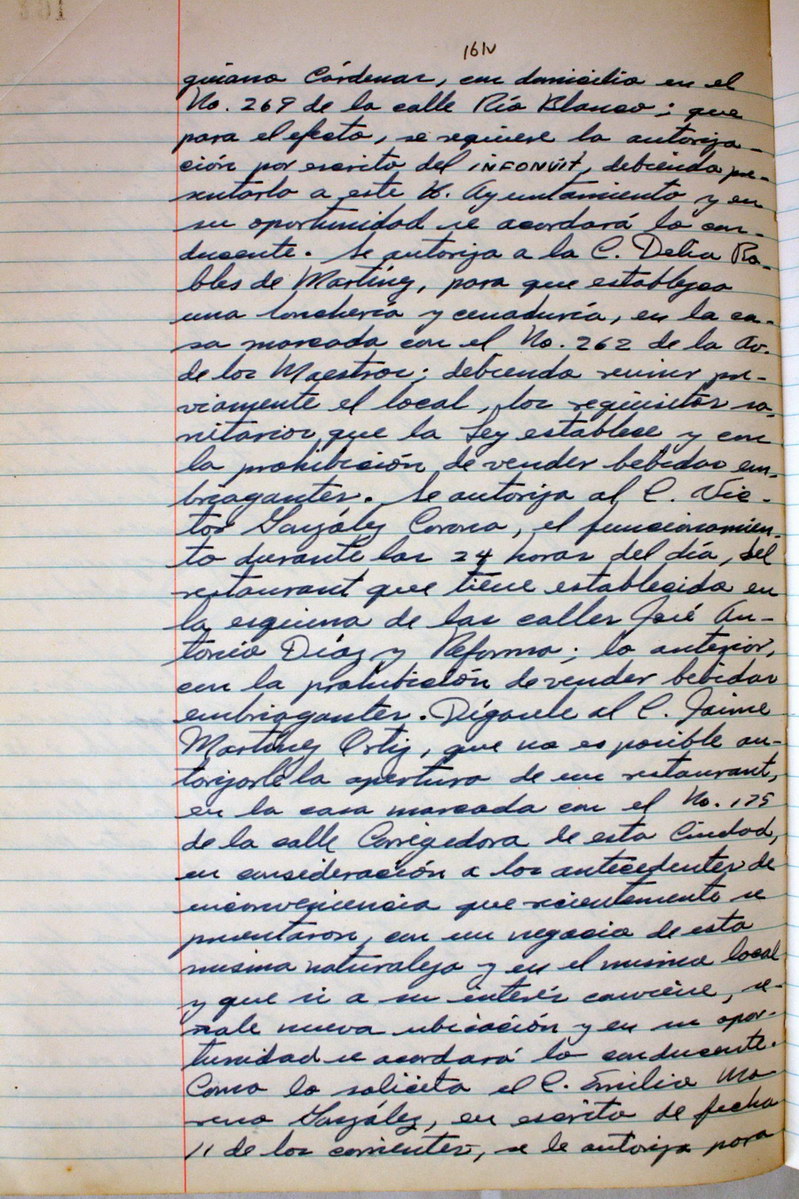 161v
guiano Cárdenas, con domicilio en el
No. 269 de la calle Río Blanco; que
para el efecto, se requiere la autoriza-
ción por escrito del INFONVIT, debiendo pre-
sentarla a este H. Ayuntamiento y en
su oportunidad se acordará lo con-
ducente. Se autoriza a la C. Delia Ro-
bles de Martínez, para que establezca
una lonchería y cenaduría, en la ca-
sa marcada con el No. 262 de la Av.
de los Maestros; debiendo reunir pre-
viamente el local, los requisitos sa-
nitarios que la Ley establece y con
la prohibición de vender bebidas em-
briagantes. Se autoriza al C. Víc-
tor González Corona, el funcionamien-
to durante las 24 horas del día, del
restaurant que tiene establecido en
la esquina de las calles José An-
tonio Díaz y Reforma; lo anterior,
con la prohibición de vender bebidas
embriagantes. Dígasele al C. Jaime
Martínez Ortiz, que no es posible au-
torizarle la apertura de un restaurant,
en la casa marcada con el No. 175
de la calle Corregidora de esta Ciudad,
en consideración a los antecedentes de
inconveniencia que recientemente se
presentaron, con un negocio de esta
misma naturaleza y en el mismo local
y que si a su interés conviene, se-
ñale nueva ubicación y en su opor-
tunidad se acordará lo conducente.
Como lo solicita el C. Emilio Mo-
reno González, en escrito de fecha
11 de los corrientes, se le autoriza para